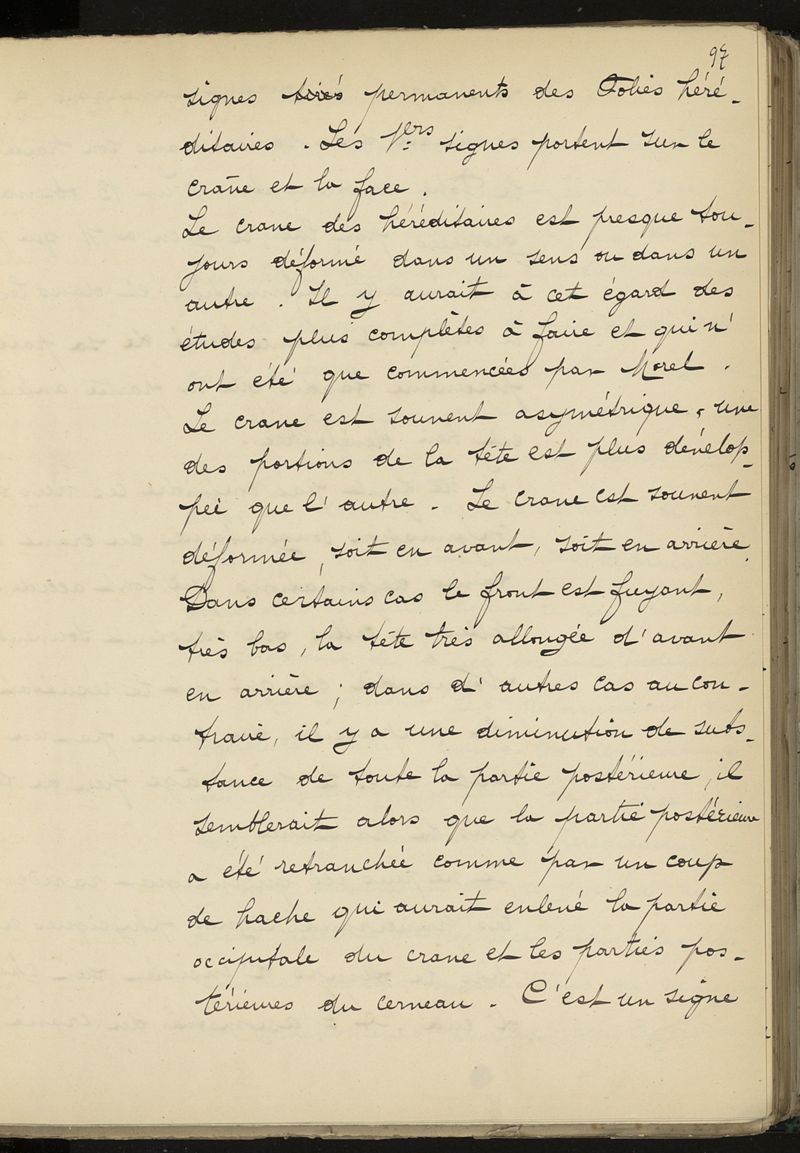 97
signes tirés permanents des Folies héré-
ditaires. Les 1ers signes portent sur le
crâne et la face.
Le crane des héréditaires est presque tou-
jours déformé dans un sens ou dans un
autre. Il y aurait à cet égard des
études plus complètes à faire et qui n'
ont été que commencées par Morel.
Le crane est souvent asymétrique, une
des portions de la tête est plus dévelop-
peé que l'autre. Le crane est souvent
déformée, soit en avant, soit en arrière.
Dans certains cas le front est fuyant,
très bas, la tête très allongée d'avant
en arrière; dans d'autres cas au con-
traire, il y a une diminution de subs-
tance de toute la partie postérieure; il
semblerait alors que la partie postérieure
a été retranchée comme par un coup
de hache qui aurait enlevé la partie
occipitale du crane et les parties pos-
térieures du cerveau. C'est un signe